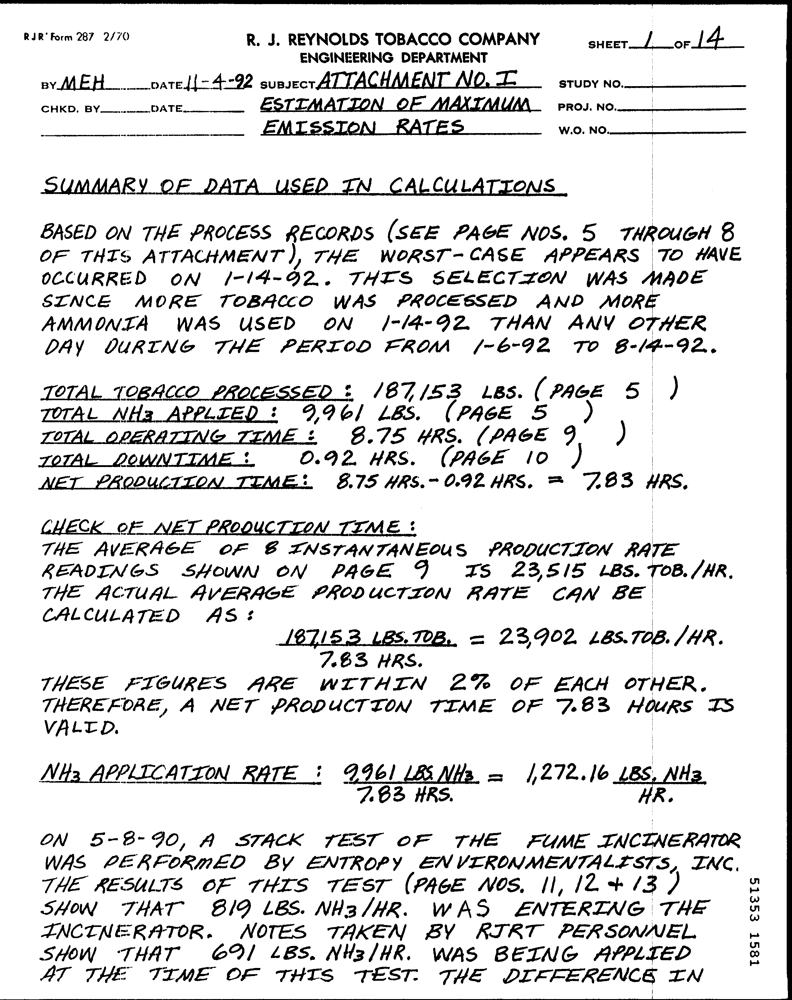 RJR Form 287 2/70
R. J. REYNOLDS TOBACCO COMPANY
ENGINEERING DEPARTMENT
SHEET 1 OF 14
BY MEH DATE 11-4-92 SUBJECT ATTACHMENT NO. I STUDY NO.
CHKD. BY DATE ESTIMATION OF MAXIMUM PROJ. NO.
EMISSION RATES W.O. NO.
SUMMARY OF DATA USED IN CALCULATIONS
BASED ON THE PROCESS RECORDS (SEE PAGE NOS. 5 THROUGH 8
OF THIS ATTACHMENT), THE WORST-CASE APPEARS TO HAVE
OCCURRED ON 1-14-92. THIS SELECTION WAS MADE
SINCE MORE TOBACCO WAS PROCESSED AND MORE
AMMONIA WAS USED ON 1-14-92 THAN ANY OTHER
DAY DURING THE PERIOD FROM 1-6-92 TO 8-14-92.
TOTAL TOBACCO PROCESSED : 187,153 LBS. (PAGE 5 )
TOTAL NH3 APPLIED : 9,961 LBS. (PAGE 5 )
TOTAL OPERATING TIME : 8.75 HRS. (PAGE 9 )
TOTAL DOWNTIME : 0.92 HRS. (PAGE 10 )
NET PRODUCTION TIME: 8.75 HRS.-0.92 HRS. = 7.83 HRS.
CHECK OF NET PRODUCTION TIME :
THE AVERAGE OF 8 INSTANTANEOUS PRODUCTION RATE
READINGS SHOWN ON PAGE 9 IS 23,515 LBS. TOB./HR.
THE ACTUAL AVERAGE PRODUCTION RATE CAN BE
CALCULATED AS :
187,153 LBS. TOB. = 23,902 LBS. TOB./HR.
7.83 HRS.
THESE FIGURES ARE WITHIN 2% OF EACH OTHER.
THEREFORE, A NET PRODUCTION TIME OF 7.83 HOURS IS
VALID.
NH3 APPLICATION RATE : 9,961 LBS. NH3 = 1,272.16 LBS. NH3
7.83 HRS. HR.
ON 5-8-90, A STACK TEST OF THE FUME INCINERATOR
WAS PERFORMED BY ENTROPY ENVIRONMENTALISTS, INC.
THE RESULTS OF THIS TEST (PAGE NOS. 11, 12 + 13 )
SHOW THAT 819 LBS. NH3/HR. WAS ENTERING THE
INCINERATOR. NOTES TAKEN BY RJRT PERSONNEL
SHOW THAT 691 LBS. NH3/HR. WAS BEING APPLIED
AT THE TIME OF THIS TEST. THE DIFFERENCE IN
51353 1581